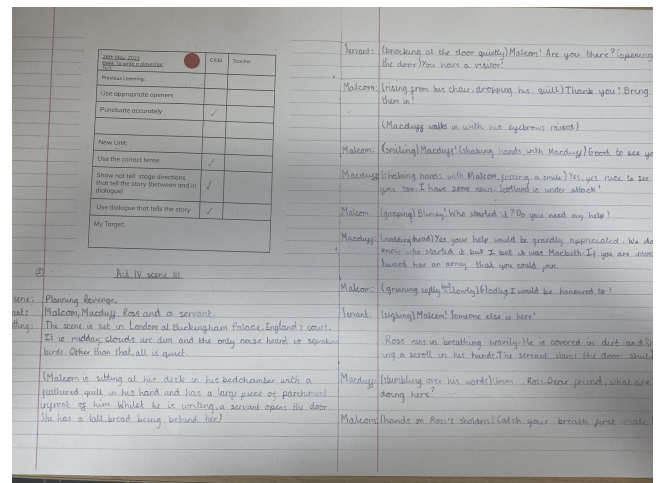 28th May 2021
Child
Teacher
Task: To write a playscript
Previous Learning:
Use appropriate openers
Punctuate accurately
New Unit:
Use the correct tense
Show not tell stage directions
that tell the story (between and in
dialogue)
Use dialogue that tells the story
My Target:
Act IV scene III
cene: Planning Revenge.
ast: Malcom, Macduff, Ross and a servant.
tting: The scene is set in London at Buckingham Palace, England's court.
It is midday, clouds are dim and the only noise heard is
birds. Other than that, all is quiet.
(Malcom is sitting at his desk in his bedchamber with a
feathered quill in his hand and has a large piece of parchment
infront of him. Whilst he is writing, a servant opens the door.
She has a tall, broad being behind her)
Servant: (knocking at the door quietly) Malcom! Are you there? (opening
the door) You have a visitor!
Malcom: (rising from his chair, dropping his quill) Thank you! Bring
them in!
(Macduff walks in with his eyebrows raised)
Malcom: (smiling) Macduff! (shaking hands with Macduff) Good to see yo
Macduff: (shaking hands with Malcom, forcing a smile) Yes, yes nice to see
you too. I have some news. Scotland is under attack!
Malcom: (gasping) Blimey! Who started it? Do you need my help?
Macduff: (nodding head) Yes your help would be greatly appreciated. We do
know who started it but I bet it was Macbeth. If you are
Siward has an army that you could join.
Malcom: (grinning but slowly) Gladly I would be honoured to!
Servant: (sighing) Malcom! Someone else is here!
Ross runs in breathing heavily. He is covered in dirt and
ing a scroll in his hands. The servant slams the door shut
Macduff: (stumbling over his words) Umm... Ross. Dear friend, what are
doing here?
Malcom: (hands on Ross's sholders) Catch your breath first mate